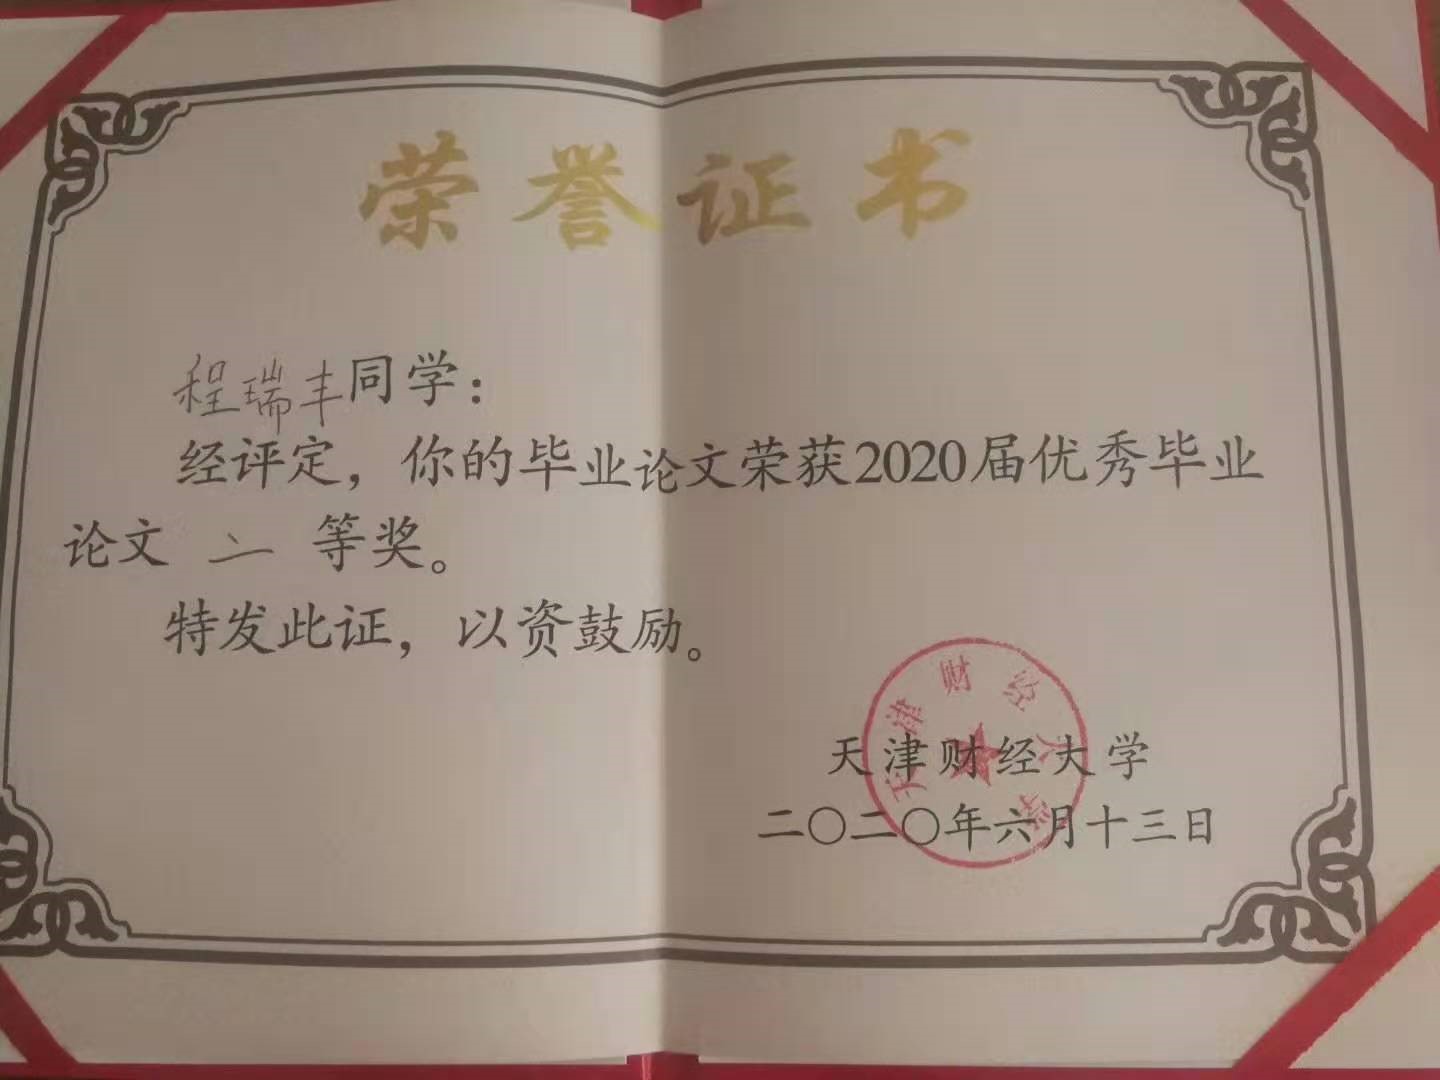 荣誉证书
程瑞丰同学：
经评定，你的毕业论文荣获2020届优秀毕业
论文 二 等奖。
特发此证，以资鼓励。
天津财经大学
天津财经大学
二〇二〇年六月十三日